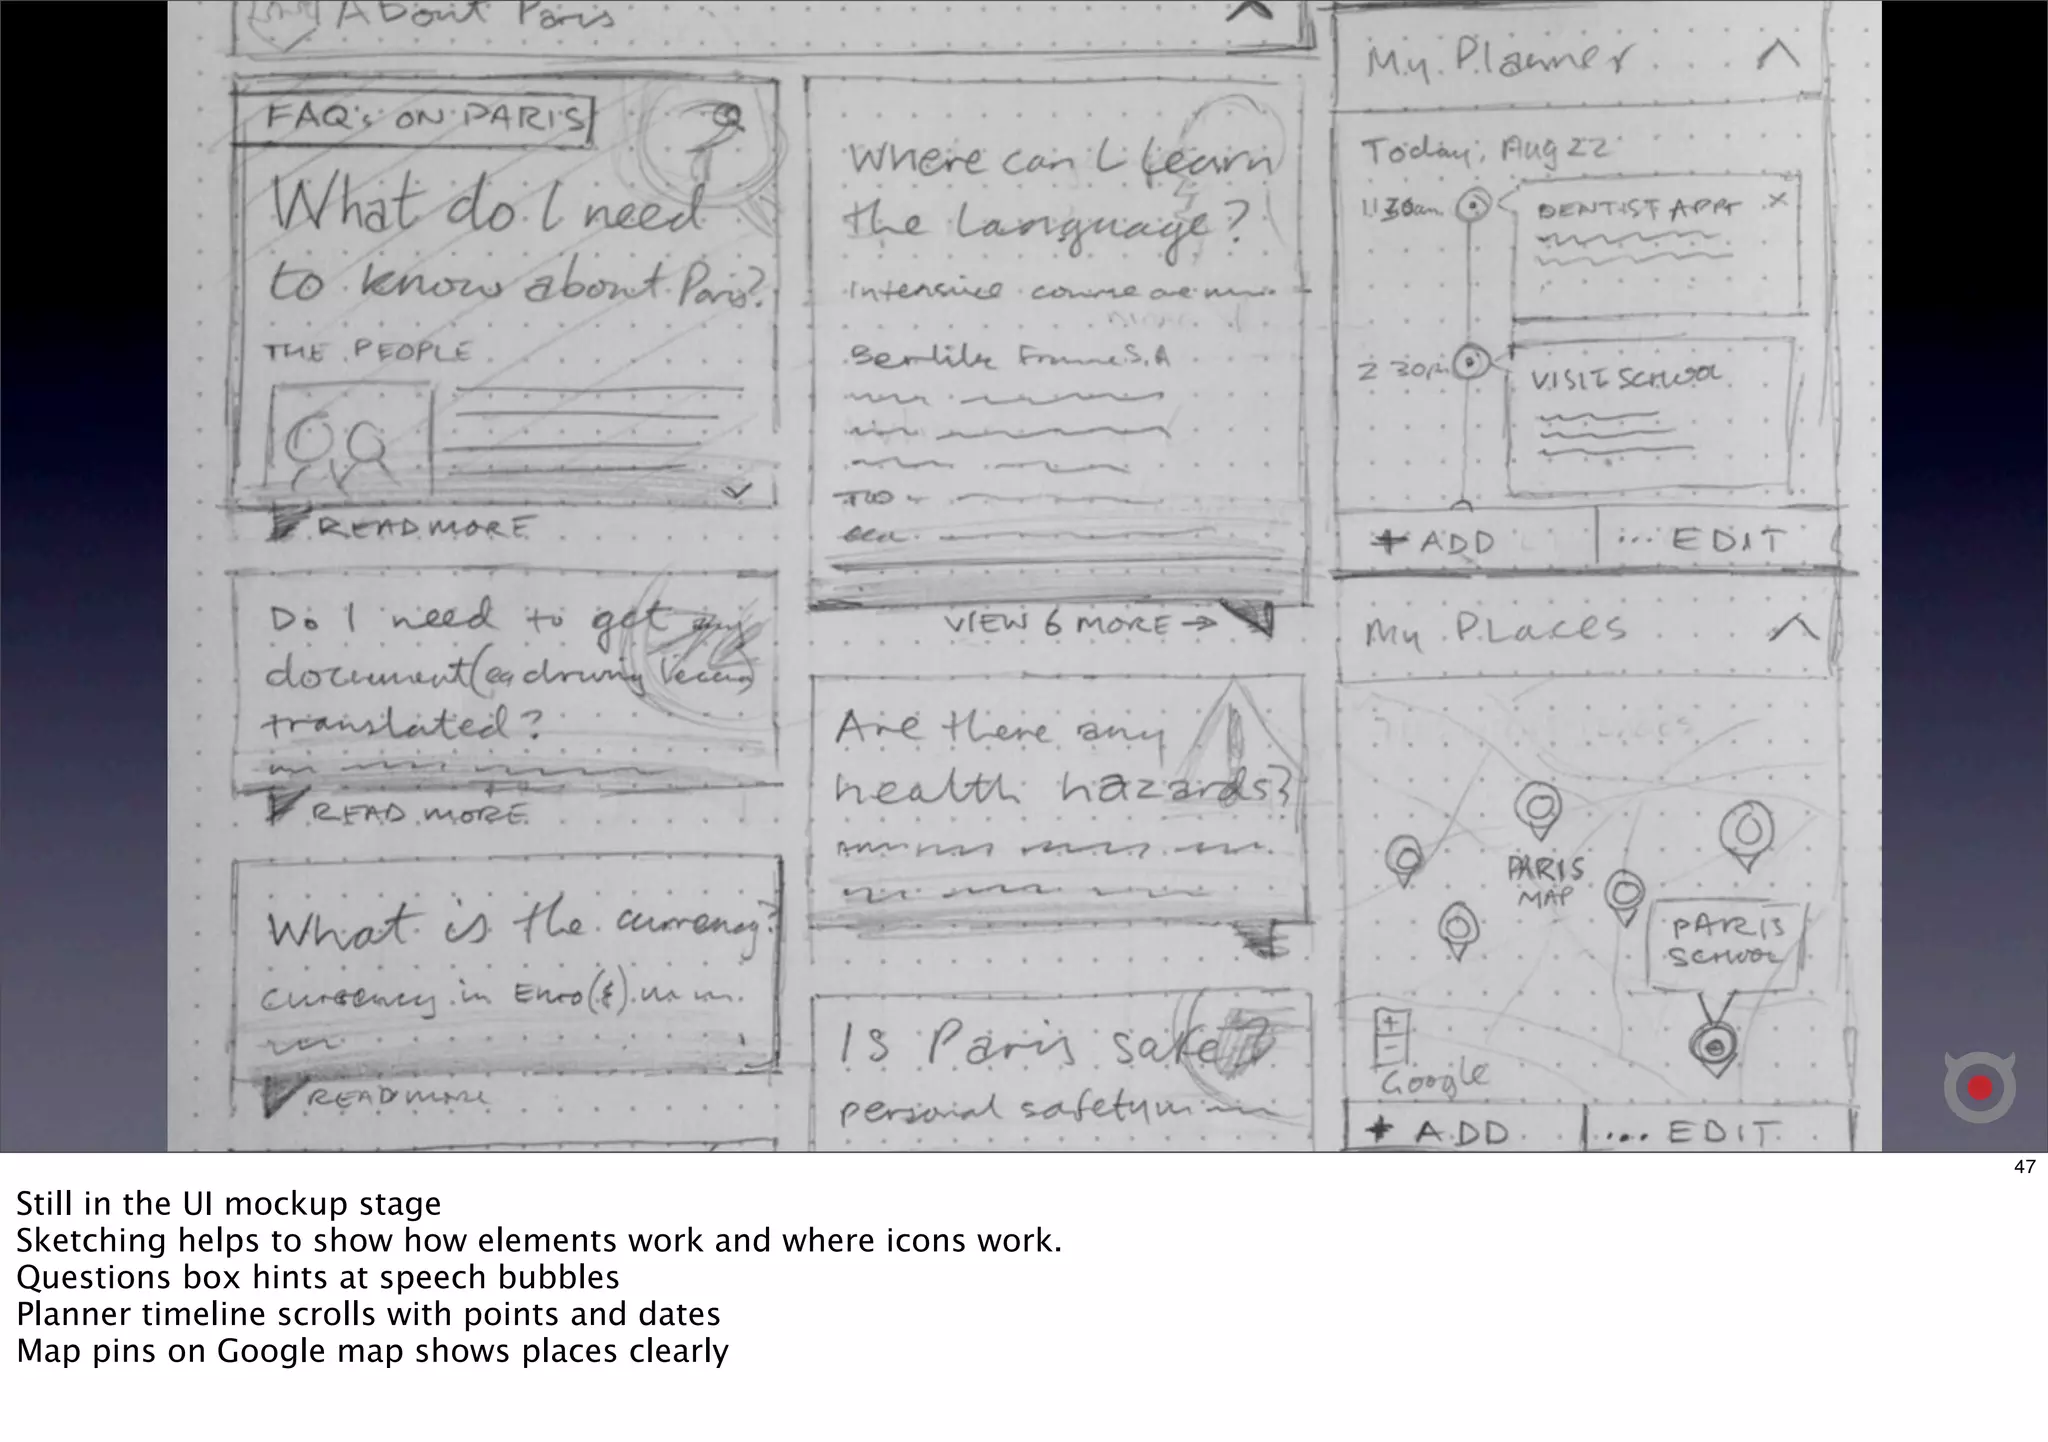 About Paris
FAQ's ON PARIS
What do I need
to know about Paris?
THE PEOPLE
READ MORE
Do I need to get any
document (eg driving
translated?
READ MORE
What is the currency?
currency in Euro(€)
READ MORE
Where can I learn
the language?
Intensive course
VIEW 6 MORE →
Are there any
health hazards?
Is Paris safe?
personal safety
My Planner
Today, Aug 22
11 30am
DENTIST APPT X
2 30pm
VISIT SCHOOL
+ ADD
... EDIT
My PLaces
PARIS
MAP
PARIS
SCHOOL
+
-
Google
+ ADD
... EDIT
47
Still in the UI mockup stage
Sketching helps to show how elements work and where icons work.
Questions box hints at speech bubbles
Planner timeline scrolls with points and dates
Map pins on Google map shows places clearly